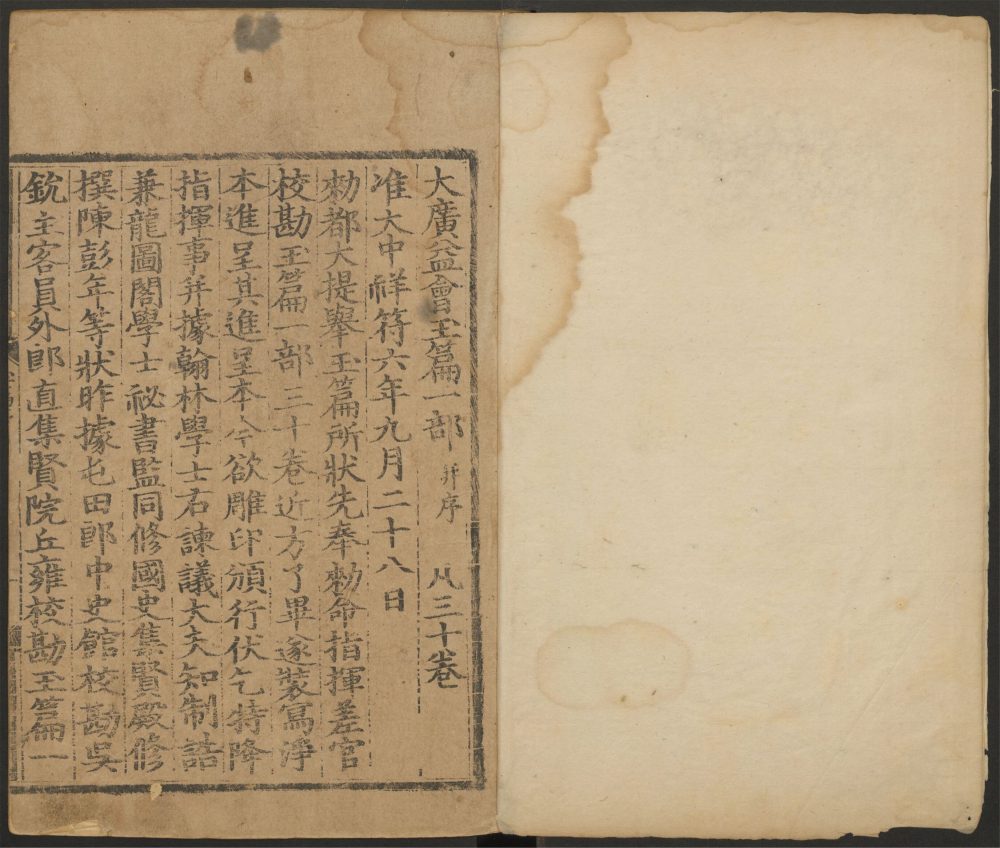 大廣益會玉篇一部 并序 凡三十卷
准大中祥符六年九月二十八日
勑都大提舉玉篇所狀先奉勑命指揮差官
校勘玉篇一部三十卷近方了畢遂裝寫淨
本進呈其進呈本今欲雕印頒行伏乞特降
指揮事并據翰林學士右諫議大夫知制誥
兼龍圖閣學士祕書監同修國史集賢殿修
撰陳彭年等狀昨據屯田郎中史館校勘吳
銳主客員外郎直集賢院丘雍校勘玉篇一